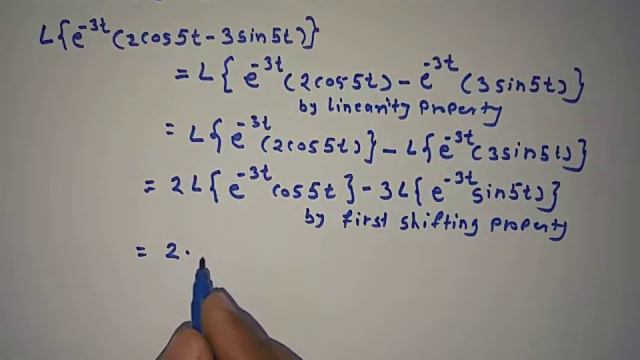 L{e^-3t (2cos5t - 3sin5t)}
= L{ e^-3t (2cos5t) - e^-3t (3sin5t)}
by linearity property
= L{e^-3t (2cos5t)} - L{e^-3t (3sin5t)}
= 2L{e^-3t cos5t} - 3L{e^-3t sin5t)}
by first shifting property
= 2.